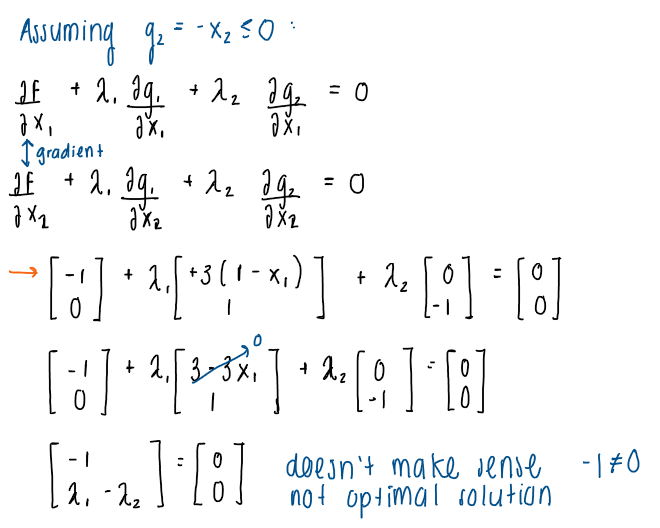 Assuming g₂ = -x₂ ≤ 0 :
∂F/∂x₁ + λ₁ ∂g₁/∂x₁ + λ₂ ∂g₂/∂x₁ = 0
↕ gradient
∂F/∂x₂ + λ₁ ∂g₁/∂x₂ + λ₂ ∂g₂/∂x₂ = 0
→ [-1 0] + λ₁ [+3(1-x₁) 1] + λ₂ [0 -1] = [0 0]
[-1 0] + λ₁ [3-3x₁ 1] 0 + λ₂ [0 -1] = [0 0]
[-1 λ₁ - λ₂] = [0 0] doesn't make sense -1≠0
not optimal solution